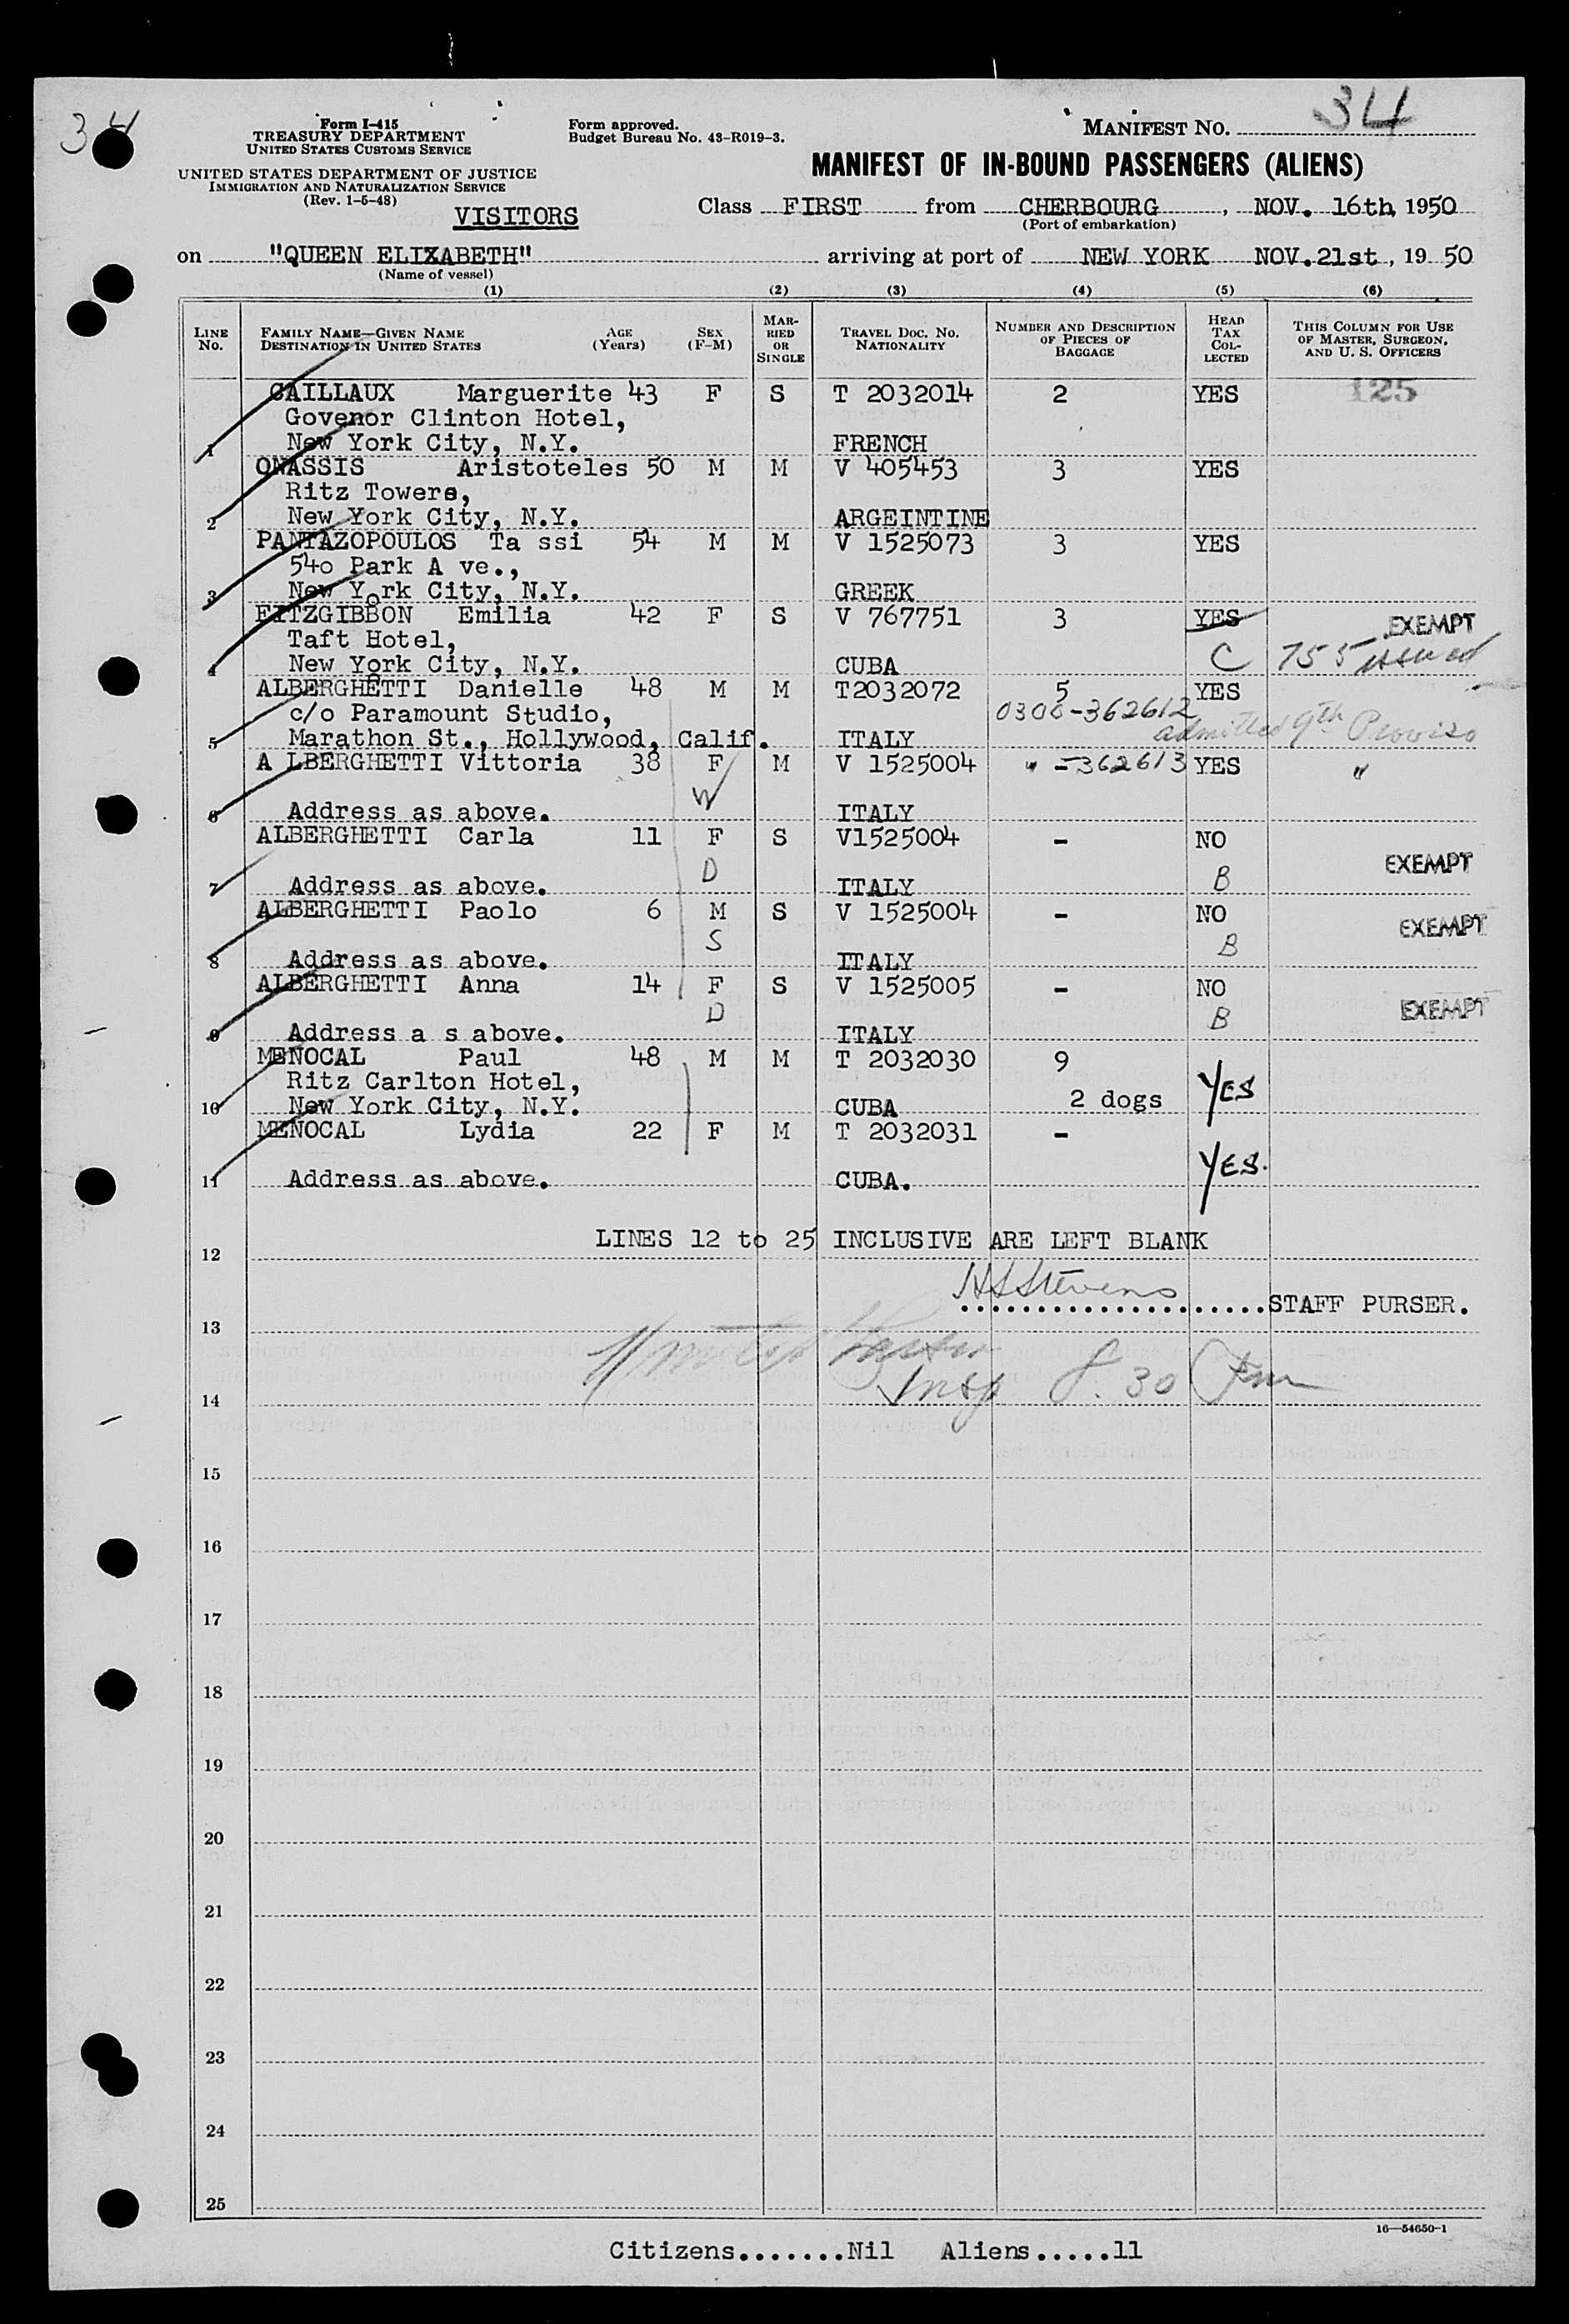 34
34
Form I-415
TREASURY DEPARTMENT
UNITED STATES CUSTOMS SERVICE
Form approved.
Budget Bureau No. 43-R019-3.
MANIFEST NO.
UNITED STATES DEPARTMENT OF JUSTICE
IMMIGRATION AND NATURALIZATION SERVICE
(Rev. 1-5-48)
MANIFEST OF IN-BOUND PASSENGERS (ALIENS)
VISITORS
Class FIRST from CHERBOURG, NOV. 16th, 1950
(Port of embarkation)
on "QUEEN ELIZABETH" arriving at port of NEW YORK NOV.21st, 19 50
(Name of vessel)
(1) (2) (3) (4) (5) (6)
LINE NO. FAMILY NAME—GIVEN NAME DESTINATION IN UNITED STATES AGE (Years) SEX (F-M) MARRIED OR SINGLE TRAVEL DOC. NO. NATIONALITY NUMBER AND DESCRIPTION OF PIECES OF BAGGAGE HEAD TAX COLLECTED THIS COLUMN FOR USE OF MASTER, SURGEON, AND U. S. OFFICERS
CAILLAUX Marguerite 43 F S T 2032014 2 YES 125
Govenor Clinton Hotel,
1 New York City, N.Y. FRENCH
ONASSIS Aristoteles 50 M M V 405453 3 YES
Ritz Towers,
2 New York City, N.Y. ARGEINTINE
PANTAZOPOULOS Ta ssi 54 M M V 1525073 3 YES
540 Park A ve.,
3 New York City, N.Y. GREEK
FITZGIBBON Emilia 42 F S V 767751 3 YES EXEMPT
Taft Hotel,
4 New York City, N.Y. CUBA C 755 issued
ALBERGHETTI Danielle 48 M M T2032072 5 YES
c/o Paramount Studio, 0306-362612 admitted 9th Proviso
5 Marathon St., Hollywood, Calif. ITALY
A LBERGHETTI Vittoria 38 F M V 1525004 " -362613 YES "
W
6 Address as above. ITALY
ALBERGHETTI Carla 11 F S V1525004 - NO EXEMPT
D B
7 Address as above. ITALY
ALBERGHETTI Paolo 6 M S V 1525004 - NO EXEMPT
S B
8 Address as above. ITALY
ALBERGHETTI Anna 14 F S V 1525005 - NO EXEMPT
D B
9 Address a s above. ITALY
MENOCAL Paul 48 M M T 2032030 9 YES
Ritz Carlton Hotel,
10 New York City, N.Y. CUBA 2 dogs
MENOCAL Lydia 22 F M T 2032031 - YES.
11 Address as above. CUBA.
LINES 12 to 25 INCLUSIVE ARE LEFT BLANK
12
HSStevens
STAFF PURSER.
13
Insp 8.30 Pm
14
15
16
17
18
19
20
21
22
23
24
25
16—54650-1
Citizens.......Nil Aliens.....11